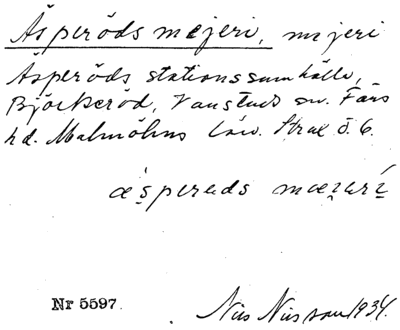 Äsperöds mejeri, mejeri
Äsperöds stationssamhälle,
Björkeröd, Vanstads sn. Färs
hd. Malmöhus län. Strax ö. 6.
ȧsperads mæi̯ari
Nr 5597.
Nils Nilsson 1934.